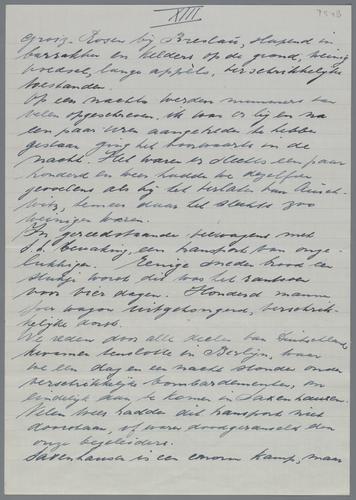 XIII
7543
grosz. Rosen bij Breslau, slapend in
barakken en kelders op de grond, weinig
voedsel, lange appèls, verschrikkelijke
toestanden.
Op een nachts werden nummers van
velen opgeschreven, ik was er bij en na
een paar uren aangekleed te hebben
gestaan ging het voorwaarts in de
nacht. Het waren er slechts een paar
honderd en weer hadden we dezelfde
gevoelens als bij het verlaten van Ausch-
witz, temeer daar het slechts zoo
weinigen waren.
In gereedstaande veewagens met
s.s. bewaking, een transport van onge-
lukkigen. Eenige sneden brood een
stukje worst dit was het rantsoen
voor vier dagen. Honderd mann
per wagon uitgehongerd, verschrik-
kelijke dorst.
We reden door alle deelen van Duitschland
kwamen tenslotte in Berlijn, waar
we een dag en een nacht stonden onder
verschrikkelijke bombardementen, om
eindelijk aan te komen in Saxenhausen.
Velen weer hadden dit transport niet
doorstaan, of waren doodgeranseld door
onze begeleiders.
Saxenhausen is een enorm kamp, maar